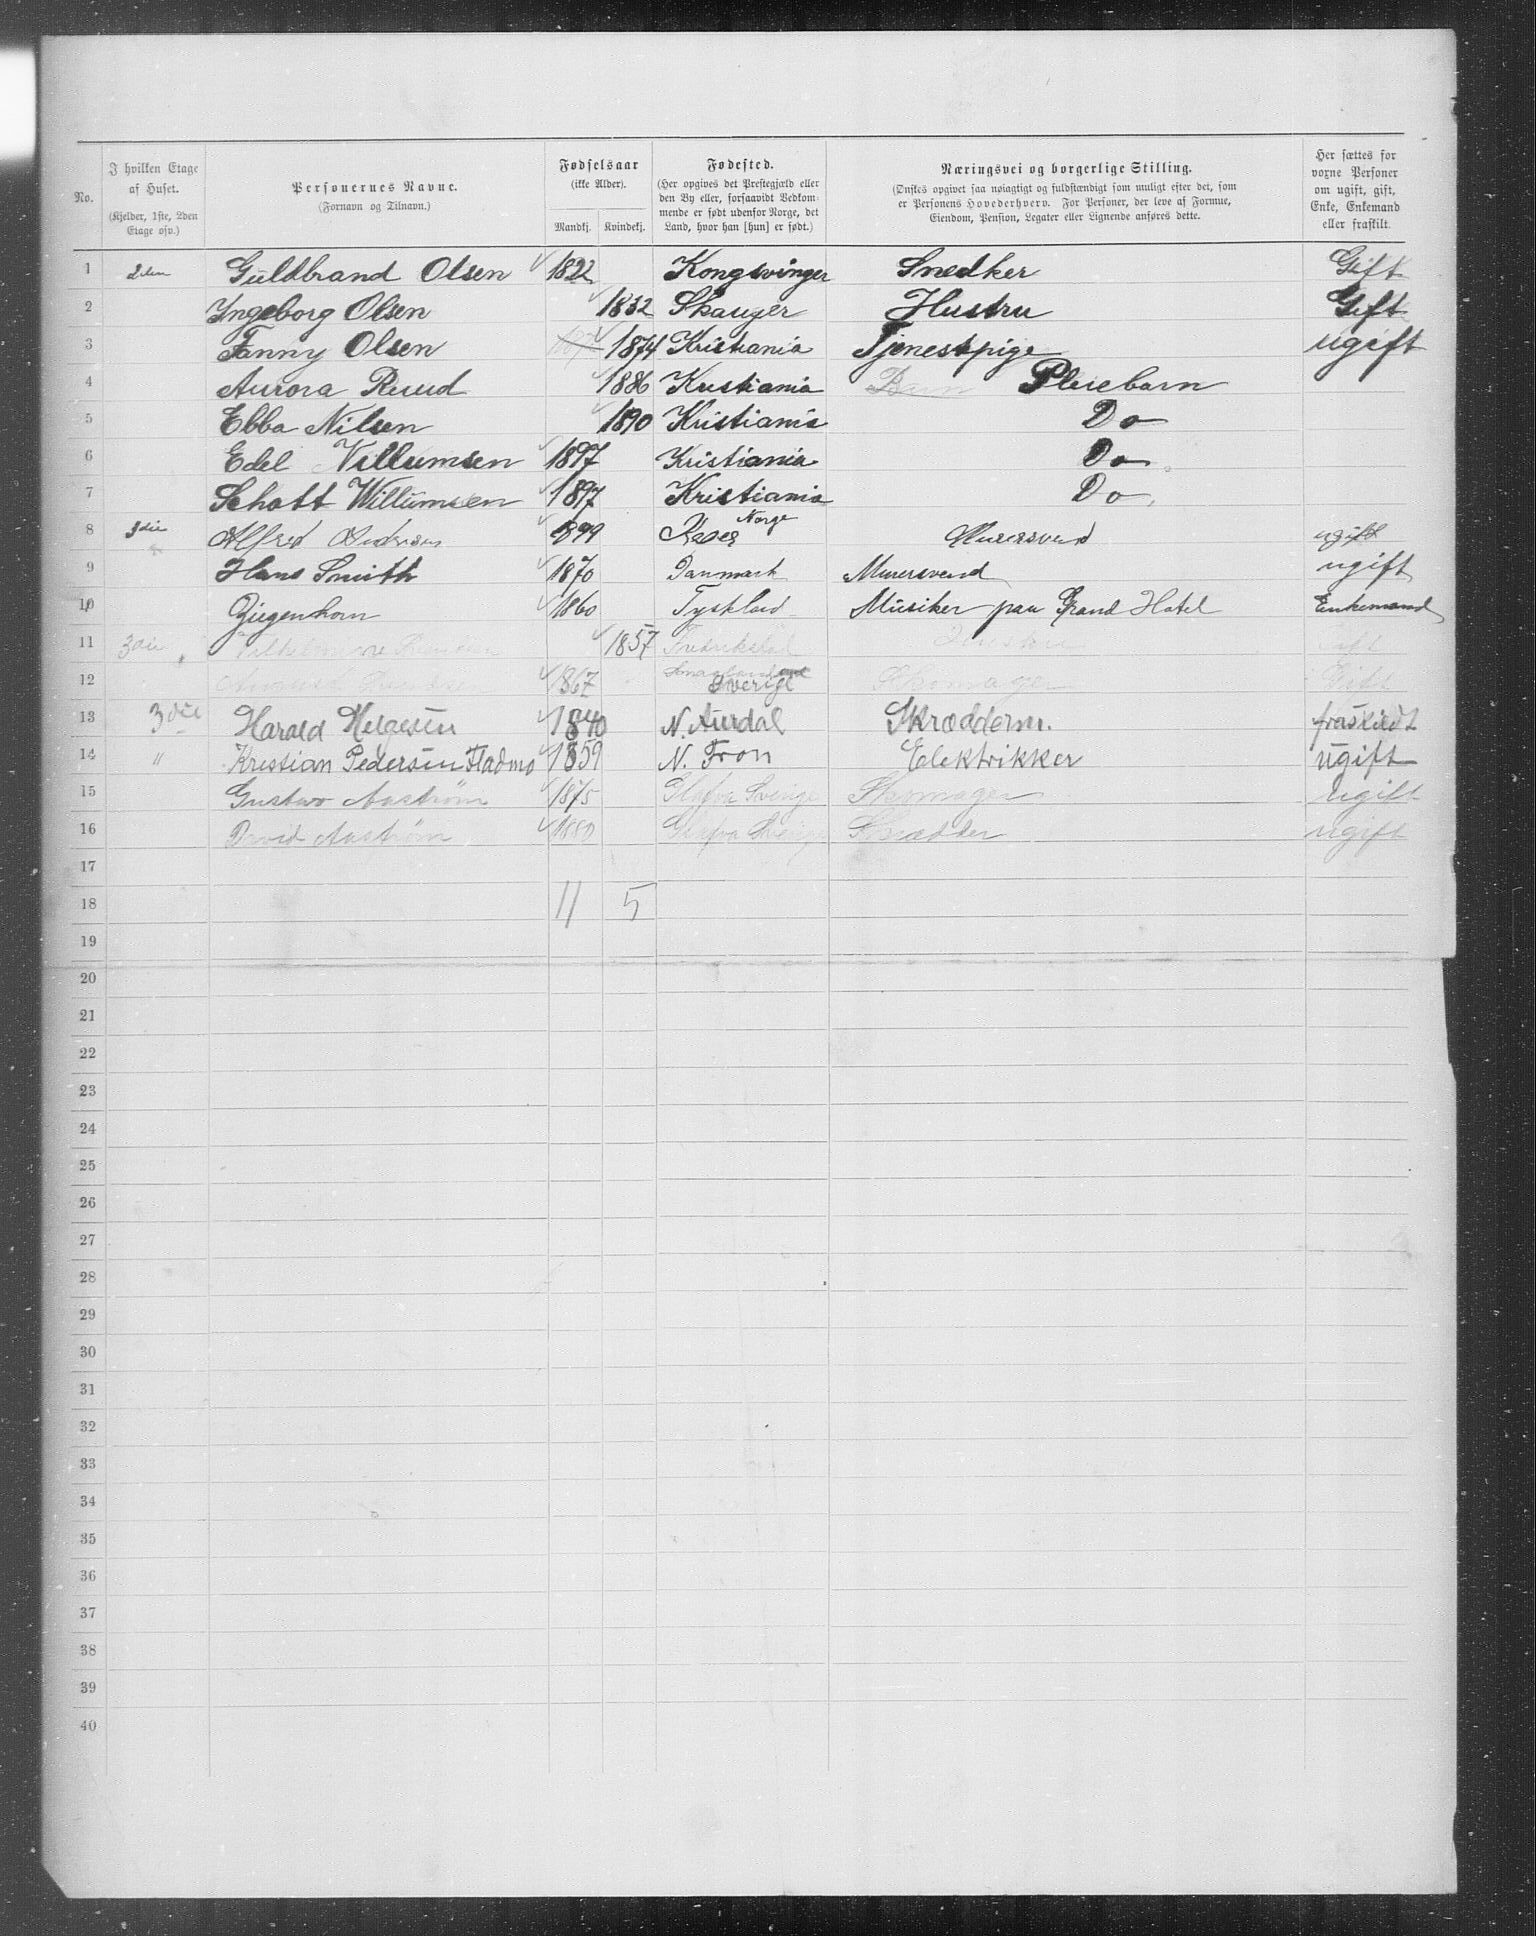 No. | I hvilken Etage af Huset. (Kjelder, 1ste, 2den Etage osv.) | Personernes Navne. (Fornavn og Tilnavn.) | Fødselsaar (ikke Alder). Mandkj. Kvindekj. | Fødested. (Her opgives det Prestegjæld eller den By eller, forsaavidt Vedkommende er født udenfor Norge, det Land, hvor han [hun] er født.) | Næringsvei og borgerlige Stilling. (Ønskes opgivet saa nøiagtigt og fuldstændigt som muligt efter det, som er Personens Hovederhverv. For Personer, der leve af Formue, Eiendom, Pension, Legater eller Lignende anføres dette.) | Her sættes for voxne Personer om ugift, gift, Enke, Enkemand eller fraskilt.
1 2den Guldbrand Olsen 1822 Kongsvinger Snedker Gift
2 Ingeborg Olsen 1832 Skauger Hustru Gift
3 Fanny Olsen 1874 Kristiania Tjenestpige ugift
4 Aurora Ruud 1886 Kristiania Barn Pleiebarn
5 Ebba Nilsen 1890 Kristiania Do
6 Edel Villumsen 1897 Kristiania Do
7 Schatt Willumsen 1897 Kristiania Do
8 3die Alfred Andersen Norge Murersvend ugift
9 Hans Smith 1870 Danmark Murersvend ugift
10 Ziegenhorn 1860 Tyskland Musiker paa Grand Hotel Enkemand
11 3die 1857 Fredrikshal Hustru gift
12 1867 Smaaland Sverige Skomager Gift
13 3die Harald Helgesen 1840 N. Aurdal Skrædderm. fraskildt
14 " Kristian Pedersen Fladmo 1859 N. Fron Elektrikker ugift
15 Gustav Aaström 1875 Glafva Sverige Skomager ugift
16 David Aaström 1880 Glafva Sverige Skrædder ugift
17
18 11 5
19
20
21
22
23
24
25
26
27
28
29
30
31
32
33
34
35
36
37
38
39
40